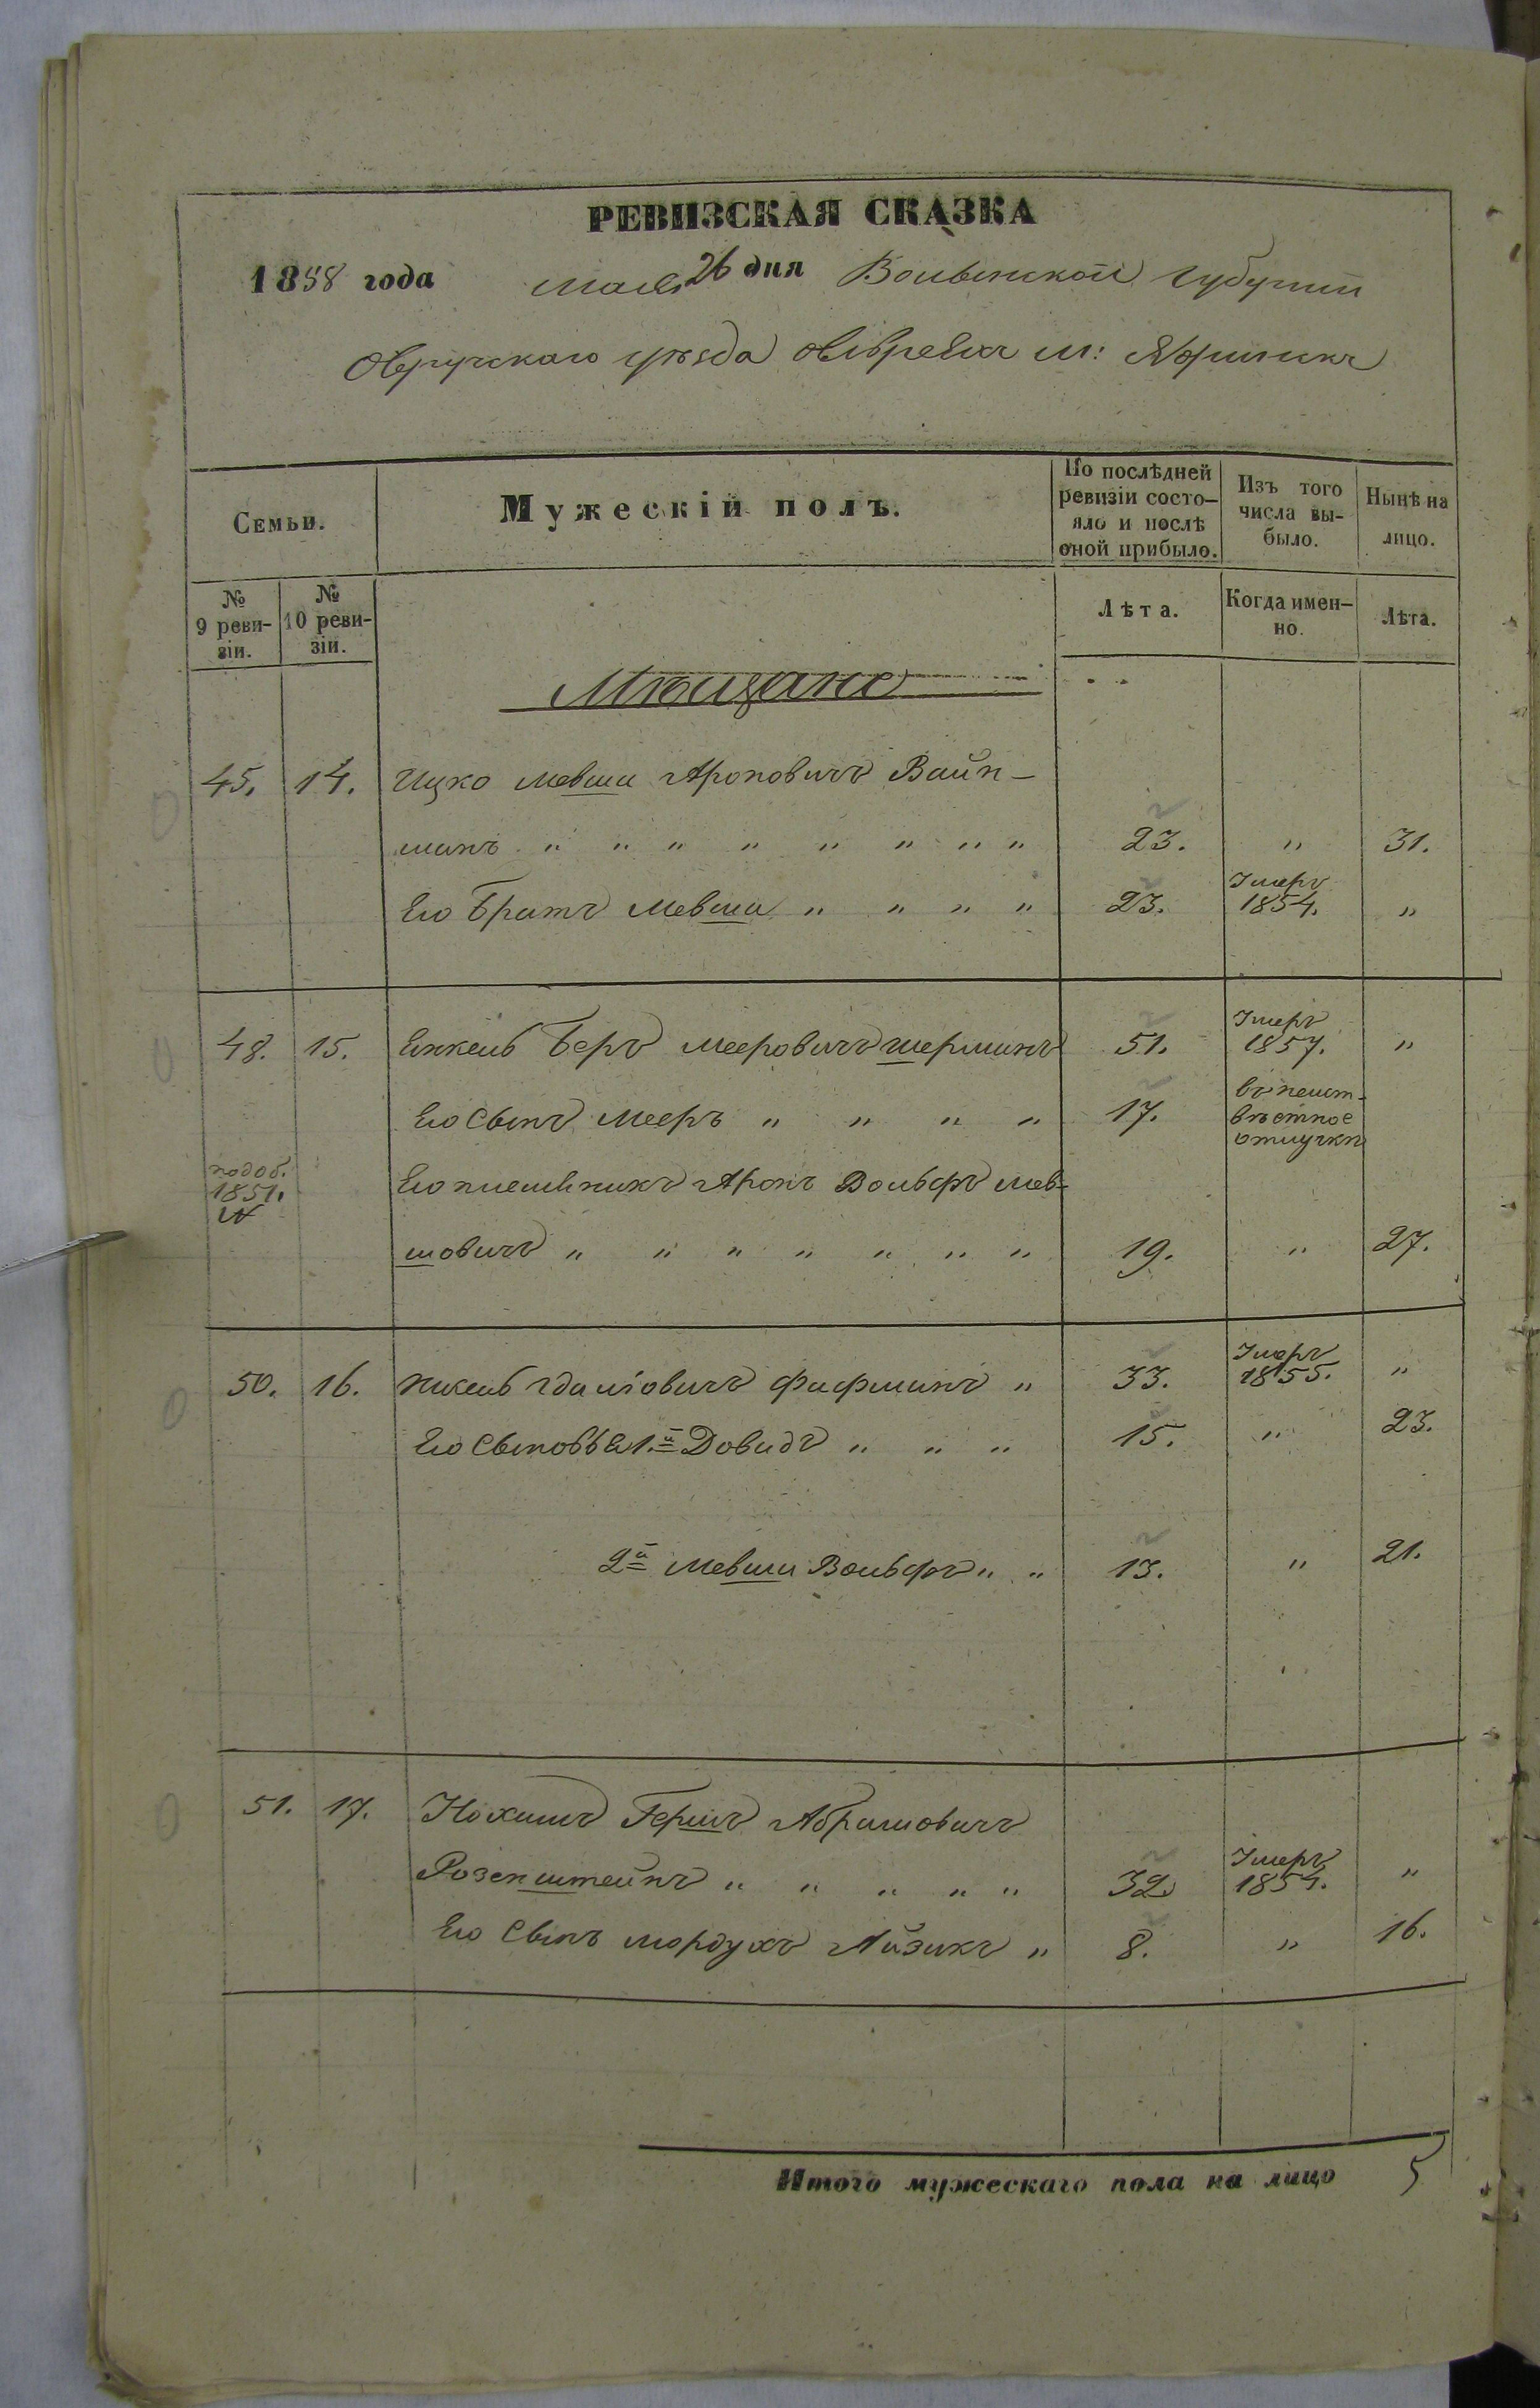 РЕВИЗСКАЯ СКАЗКА
1858 года мая 26 дня Волынской губерніи
Овручскаго уѣзда о евреяхъ м:
Семьи.
Мужескій полъ.
По послѣдней ревизіи состо-
яло и послѣ оной прибыло.
Изъ того числа вы-
было.
Нынѣ на лицо.
№ 9 реви-
зіи.
№ 10 реви-
зіи.
Лѣта.
Когда имен-
но.
Лѣта.
Мѣщане
45. 14. Ицко Мевша Ароновичъ Вайн-
манъ " " " " " " " " 23. " 31.
Его Братъ Мевша " " " " 23. Умеръ 1854. "
48. 15. Янкель Беръ Мееровичъ Шерманъ 51. Умеръ 1857. "
Его Сынъ Мееръ " " " " 17. в отлучкѣ
1851. Его племянникъ Аронъ Вольфъ Мев-
шовичъ " " " " " " " 19. " 27.
50. 16. Фифманъ " 33. Умеръ 1855. "
Его Сыновья 1.й Довидъ " " " 15. " 23.
2й Мевша Вольфъ " " 13. " 21.
51. 17. Нохимъ Гершъ Абрамовичъ
Розенштейнъ " " " " " 32. Умеръ 1854. "
Его Сынъ Мордухъ Айзикъ " 8. " 16.
Итого мужескаго пола на лицо 5